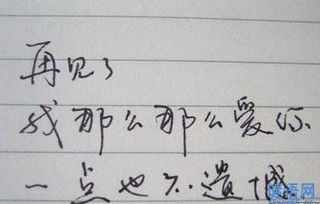 再见了
我那么那么爱你
一点也不遗憾